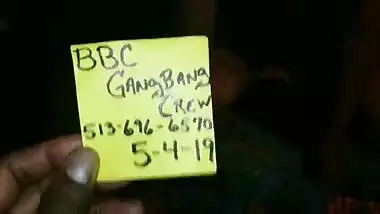 BBC
GangBang
Crew
513-696-6570
5-4-19